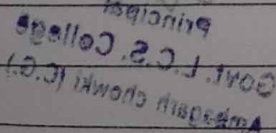 principal
Govt. L.C.S. College
Ambagarh chowki (C.G.)